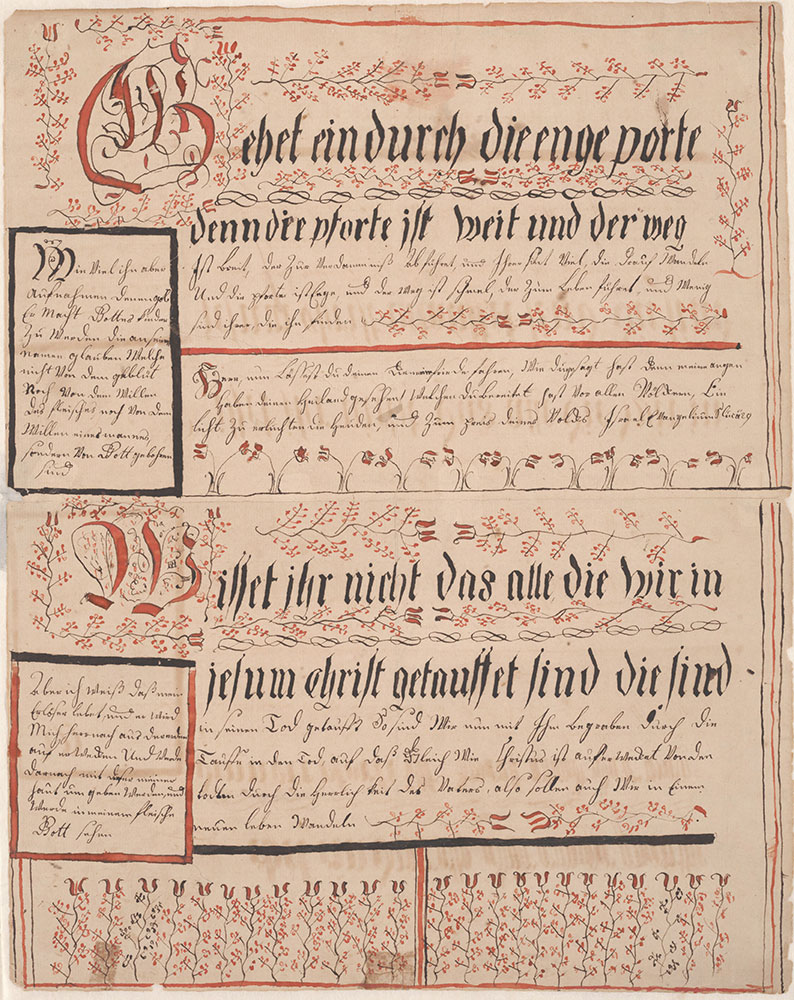 Gehet ein durch die enge porte
denn die pforte ist Weit und der weg
Ist breit, der Zur Verdammniß abführet, und Ihrer sind Viel, die drauf Wandeln
Und die pforte ist Enge, und der Weg ist schmal der Zum Leben führet, und Wenig
sind ihrer die ihn finden
Wie Viel ihn aber
Aufnahmen denen gab
Er Macht Gottes Kinder
Zu Werden die an seinen
Namen glauben Welche
nicht Von dem geblüt
Noch Von dem Willen
des fleisches noch Von dem
Willen eines mannes,
sondern Von Gott gebohren
sind
Herr, nun Lässest du deinen Diener friede fahren, Wie du gesagt hast denn meine augen
Haben deinen Heiland gesehen Welchen du bereitet hast vor allen Völckern, Ein
licht Zu erlichten die Heyden, und Zum preis deines Volcks Israel Evangelium
Wisset ihr nicht das alle die Wir in
jesum Christ getauffet sind die sind
in seinen Tod getauft So sind Wir nun mit Ihm begraben durch die
Taufe in den Tod, auf daß Gleich Wie Christus ist aufferwecket Von den
todten durch die Herrlichkeit des Vaters, also sollen auch Wir in Einem
neuen leben Wandeln
Aber ich Weiß daß mein
Erlöser lebet, und er Wird
Mich hernach aus der erden
auf er Wecken Und Werde
Darnach mit dieser meiner
haut um geben Werden, und
Werde in meinem fleische
Gott sehen